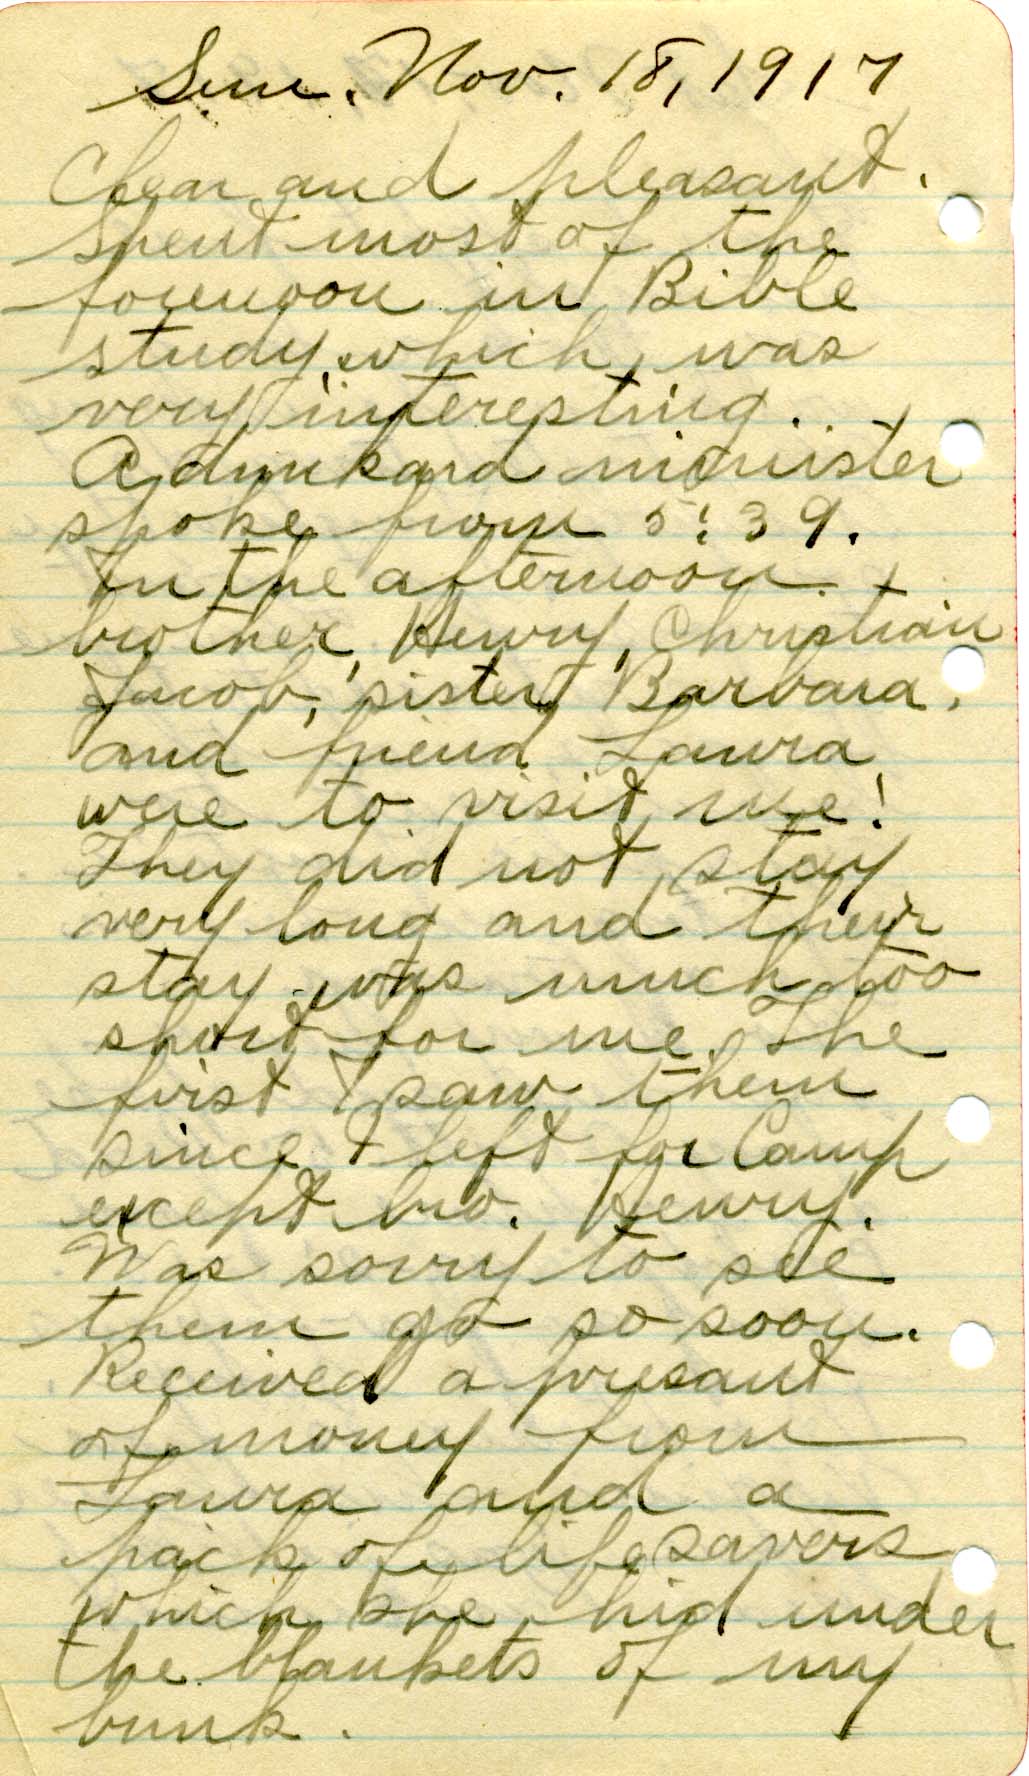 Sun. Nov. 18, 1917
Clear and pleasant.
Spent most of the
forenoon in Bible
study which was
very interesting.
A dunkard minister
spoke from 5:39.
In the afternoon
brother, Henry, Christian
Jacob, sister Barbara,
and friend Laura
were to visit me!
They did not stay
very long and their
stay was much too
short for me. The
first I saw them
since I left for Camp
except bro. Henry.
Was sorry to see
them go so soon.
Received a presant
of money from
Laura and a
pack of life savers
which she hid under
the blankets of my
bunk.